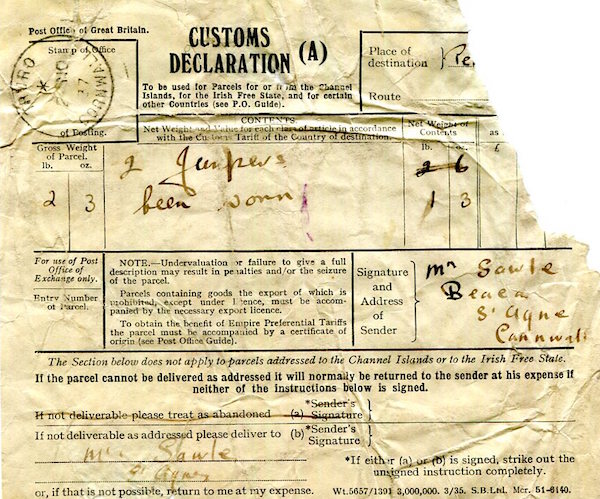 Post Office of Great Britain.
Stamp of Office
TRURO
CORNWALL
37
of Posting.
CUSTOMS
DECLARATION (A)
To be used for Parcels for or from the Channel
Islands, for the Irish Free State, and for certain
other Countries (see P.O. Guide).
Place of
destination } Pe
Route
Gross Weight
of Parcel.
lb. oz.
2 3
CONTENTS.
Net Weight and Value for each class of article in accordance
with the Customs Tariff of the Country of destination.
2 Jumpers
been worn
Net Weight of
Contents
lb. oz.
2 6
1 3
as
£
For use of Post
Office of
Exchange only.
Entry Number
of Parcel.
NOTE.—Undervaluation or failure to give a full
description may result in penalties and/or the seizure
of the parcel.
Parcels containing goods the export of which is
prohibited, except under licence, must be accom-
panied by the necessary export licence.
To obtain the benefit of Empire Preferential Tariffs
the parcel must be accompanied by a certificate of
origin (see Post Office Guide).
Signature
and
Address
of
Sender
Sawle
St Agne
The Section below does not apply to parcels addressed to the Channel Islands or to the Irish Free State.
If the parcel cannot be delivered as addressed it will normally be returned to the sender at his expense if
neither of the instructions below is signed.
If not deliverable please treat as abandoned (a) *Sender's Signature }
If not deliverable as addressed please deliver to (b) *Sender's Signature }
Sawle
St Agne
*If either (a) or (b) is signed, strike out the
unsigned instruction completely.
or, if that is not possible, return to me at my expense. Wt.5657/1391 3,000,000. 3/35. S.B.Ltd. Mcr. 51-6140.